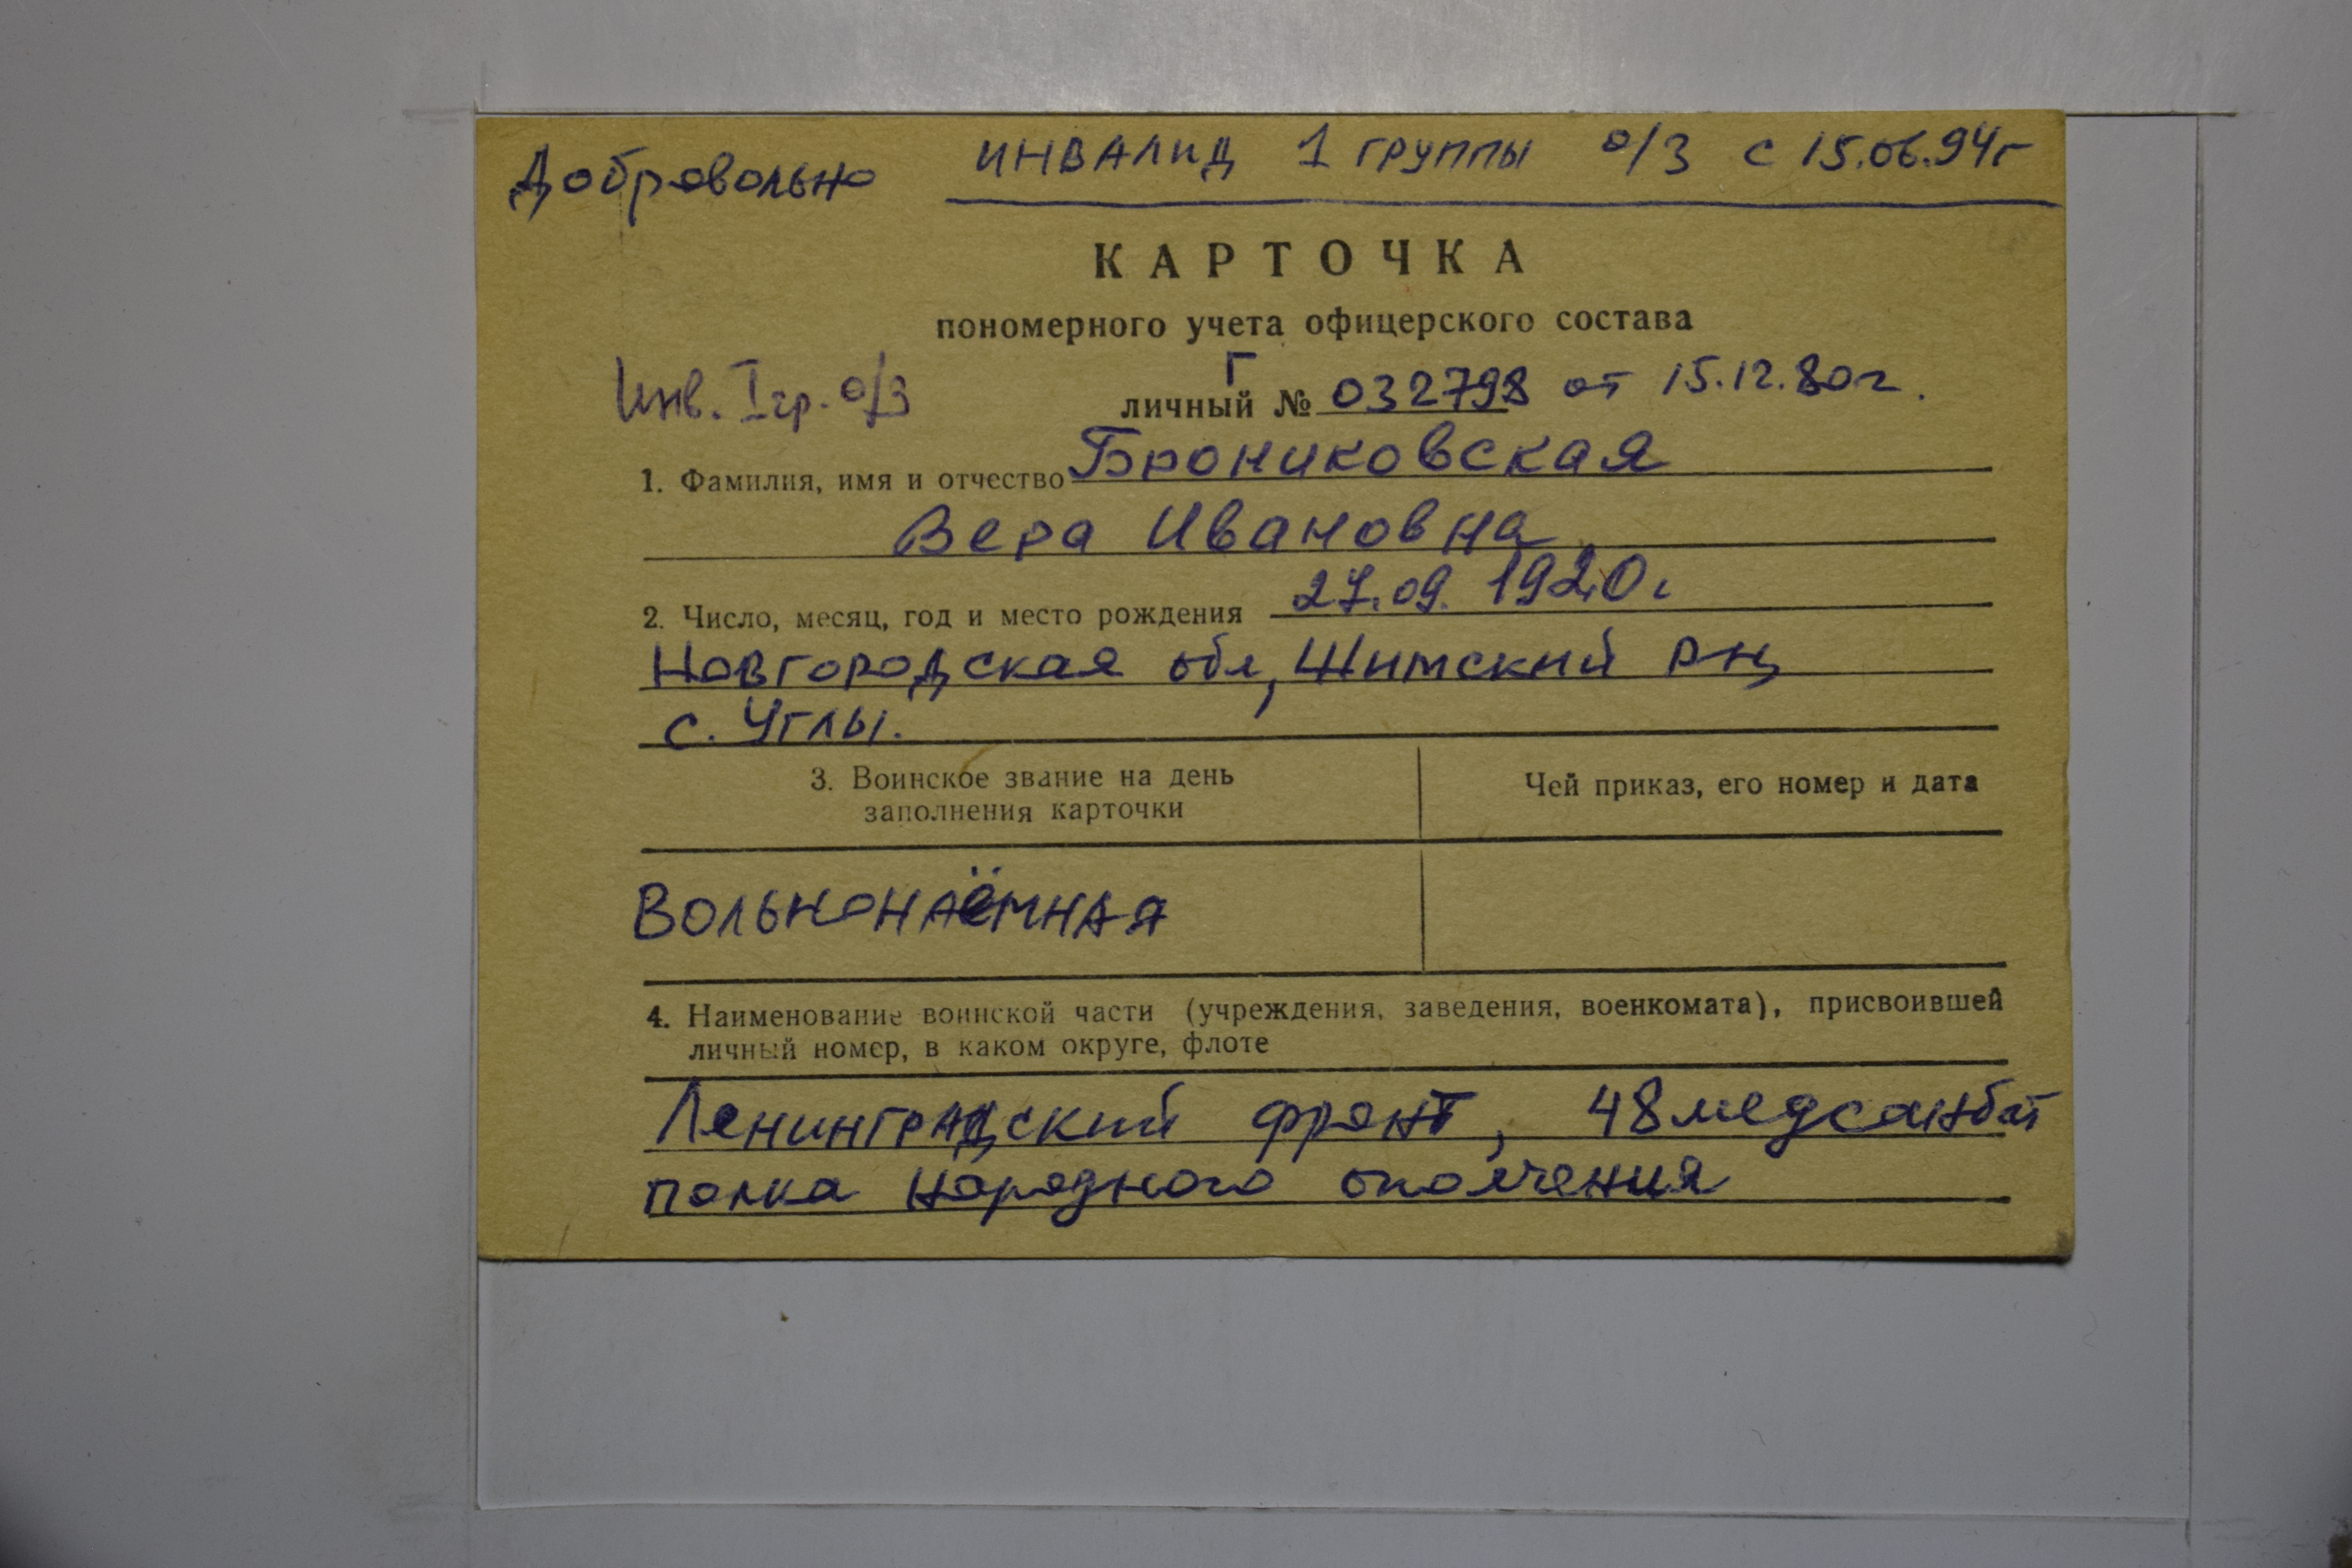 Добровольно ИНВАЛИД 1 ГРУППЫ о/З с 15.06.94г
КАРТОЧКА
пономерного учета офицерского состава
Инв. I гр. о/з
Г
личный № 032798 от 15.12.80г.
1. Фамилия, имя и отчество Брониковская
Вера Ивановна
2. Число, месяц, год и место рождения 27.09.1920г
Новгородская обл, Шимский рн
с. Углы.
3. Воинское звание на день Чей приказ, его номер и дата
заполнения карточки
Вольнонаёмная
4. Наименование воинской части (учреждения, заведения, военкомата), присвоившей
личный номер, в каком округе, флоте
Ленинградский фронт, 48 медсанбат
полка народного ополчения